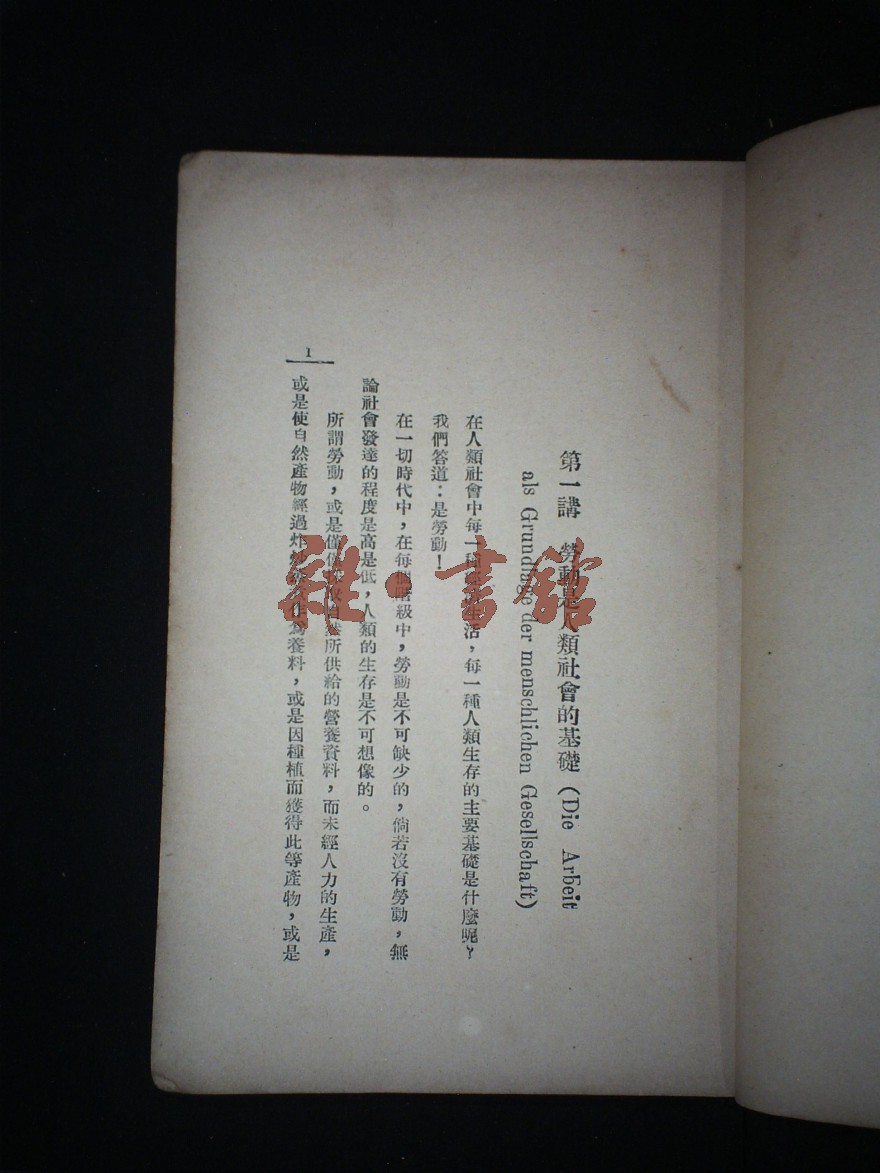 第一講 勞動是人類社會的基礎 (Die Arbeit
als Grundlage der menschlichen Gesellschaft)
在人類社會中每一種生活，每一種人類生存的主要基礎是什麼呢？
我們答道：是勞動！
在一切時代中，在每個階級中，勞動是不可缺少的，倘若沒有勞動，無
論社會發達的程度是高是低，人類的生存是不可想像的。
所謂勞動，或是僅僅採取自然所供給的營養資料，而未經人力的生產，
或是使自然產物經過炸炒作為養料，或是因種植而獲得此等產物，或是
1
雜·書館